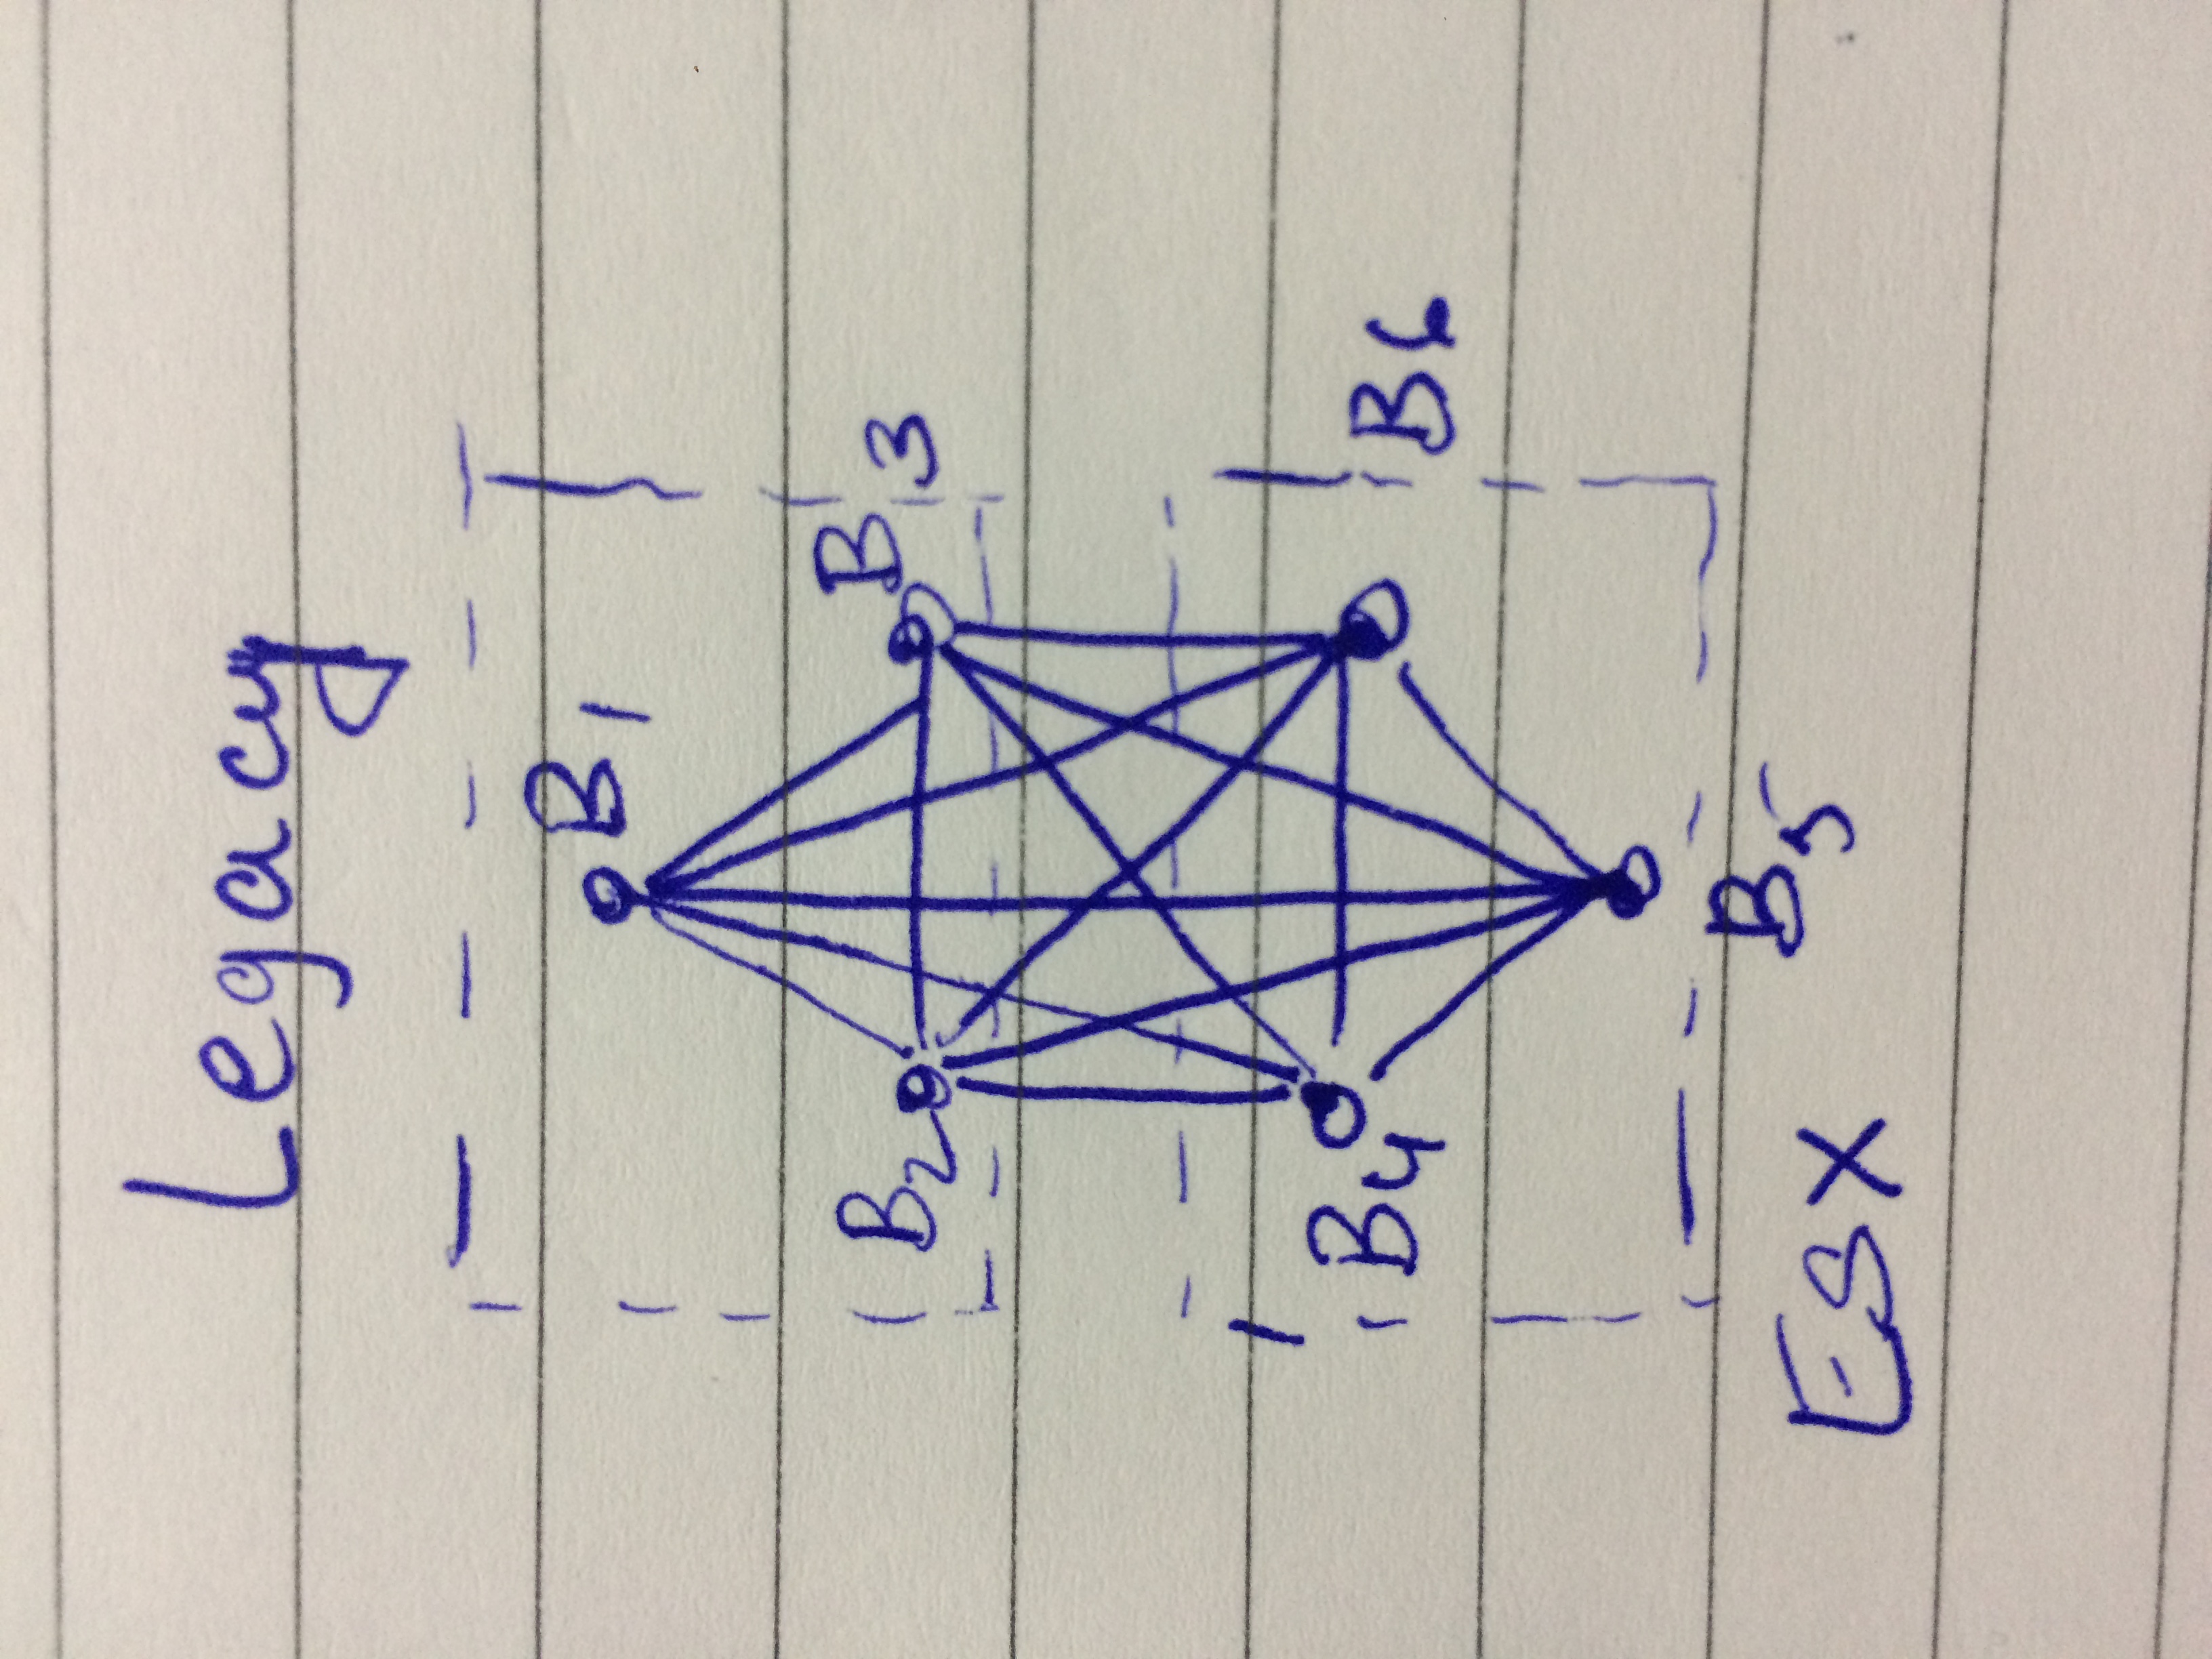 Legacy
B1
B2
B3
B4
B6
B5
ESX